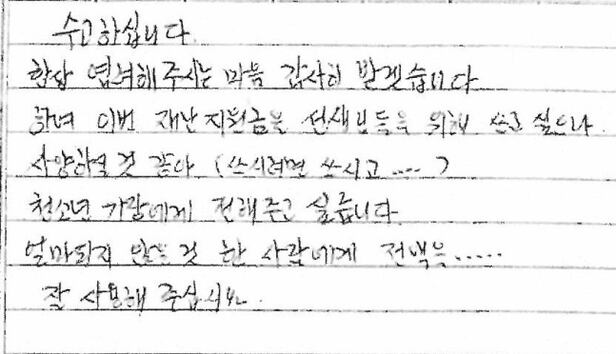 수고하십니다
항상 염려해 주시는 마음 감사히 받겠습니다
하여 이번 재난지원금을 선생님들을 위해 쓰고 싶으나
사양하실 것 같아 (쓰시려면 쓰시고 ....)
청소년 가장에게 전해주고 싶습니다
얼마되지 않는 것 한 사람에게 전액을.....
잘 사용해 주십시요